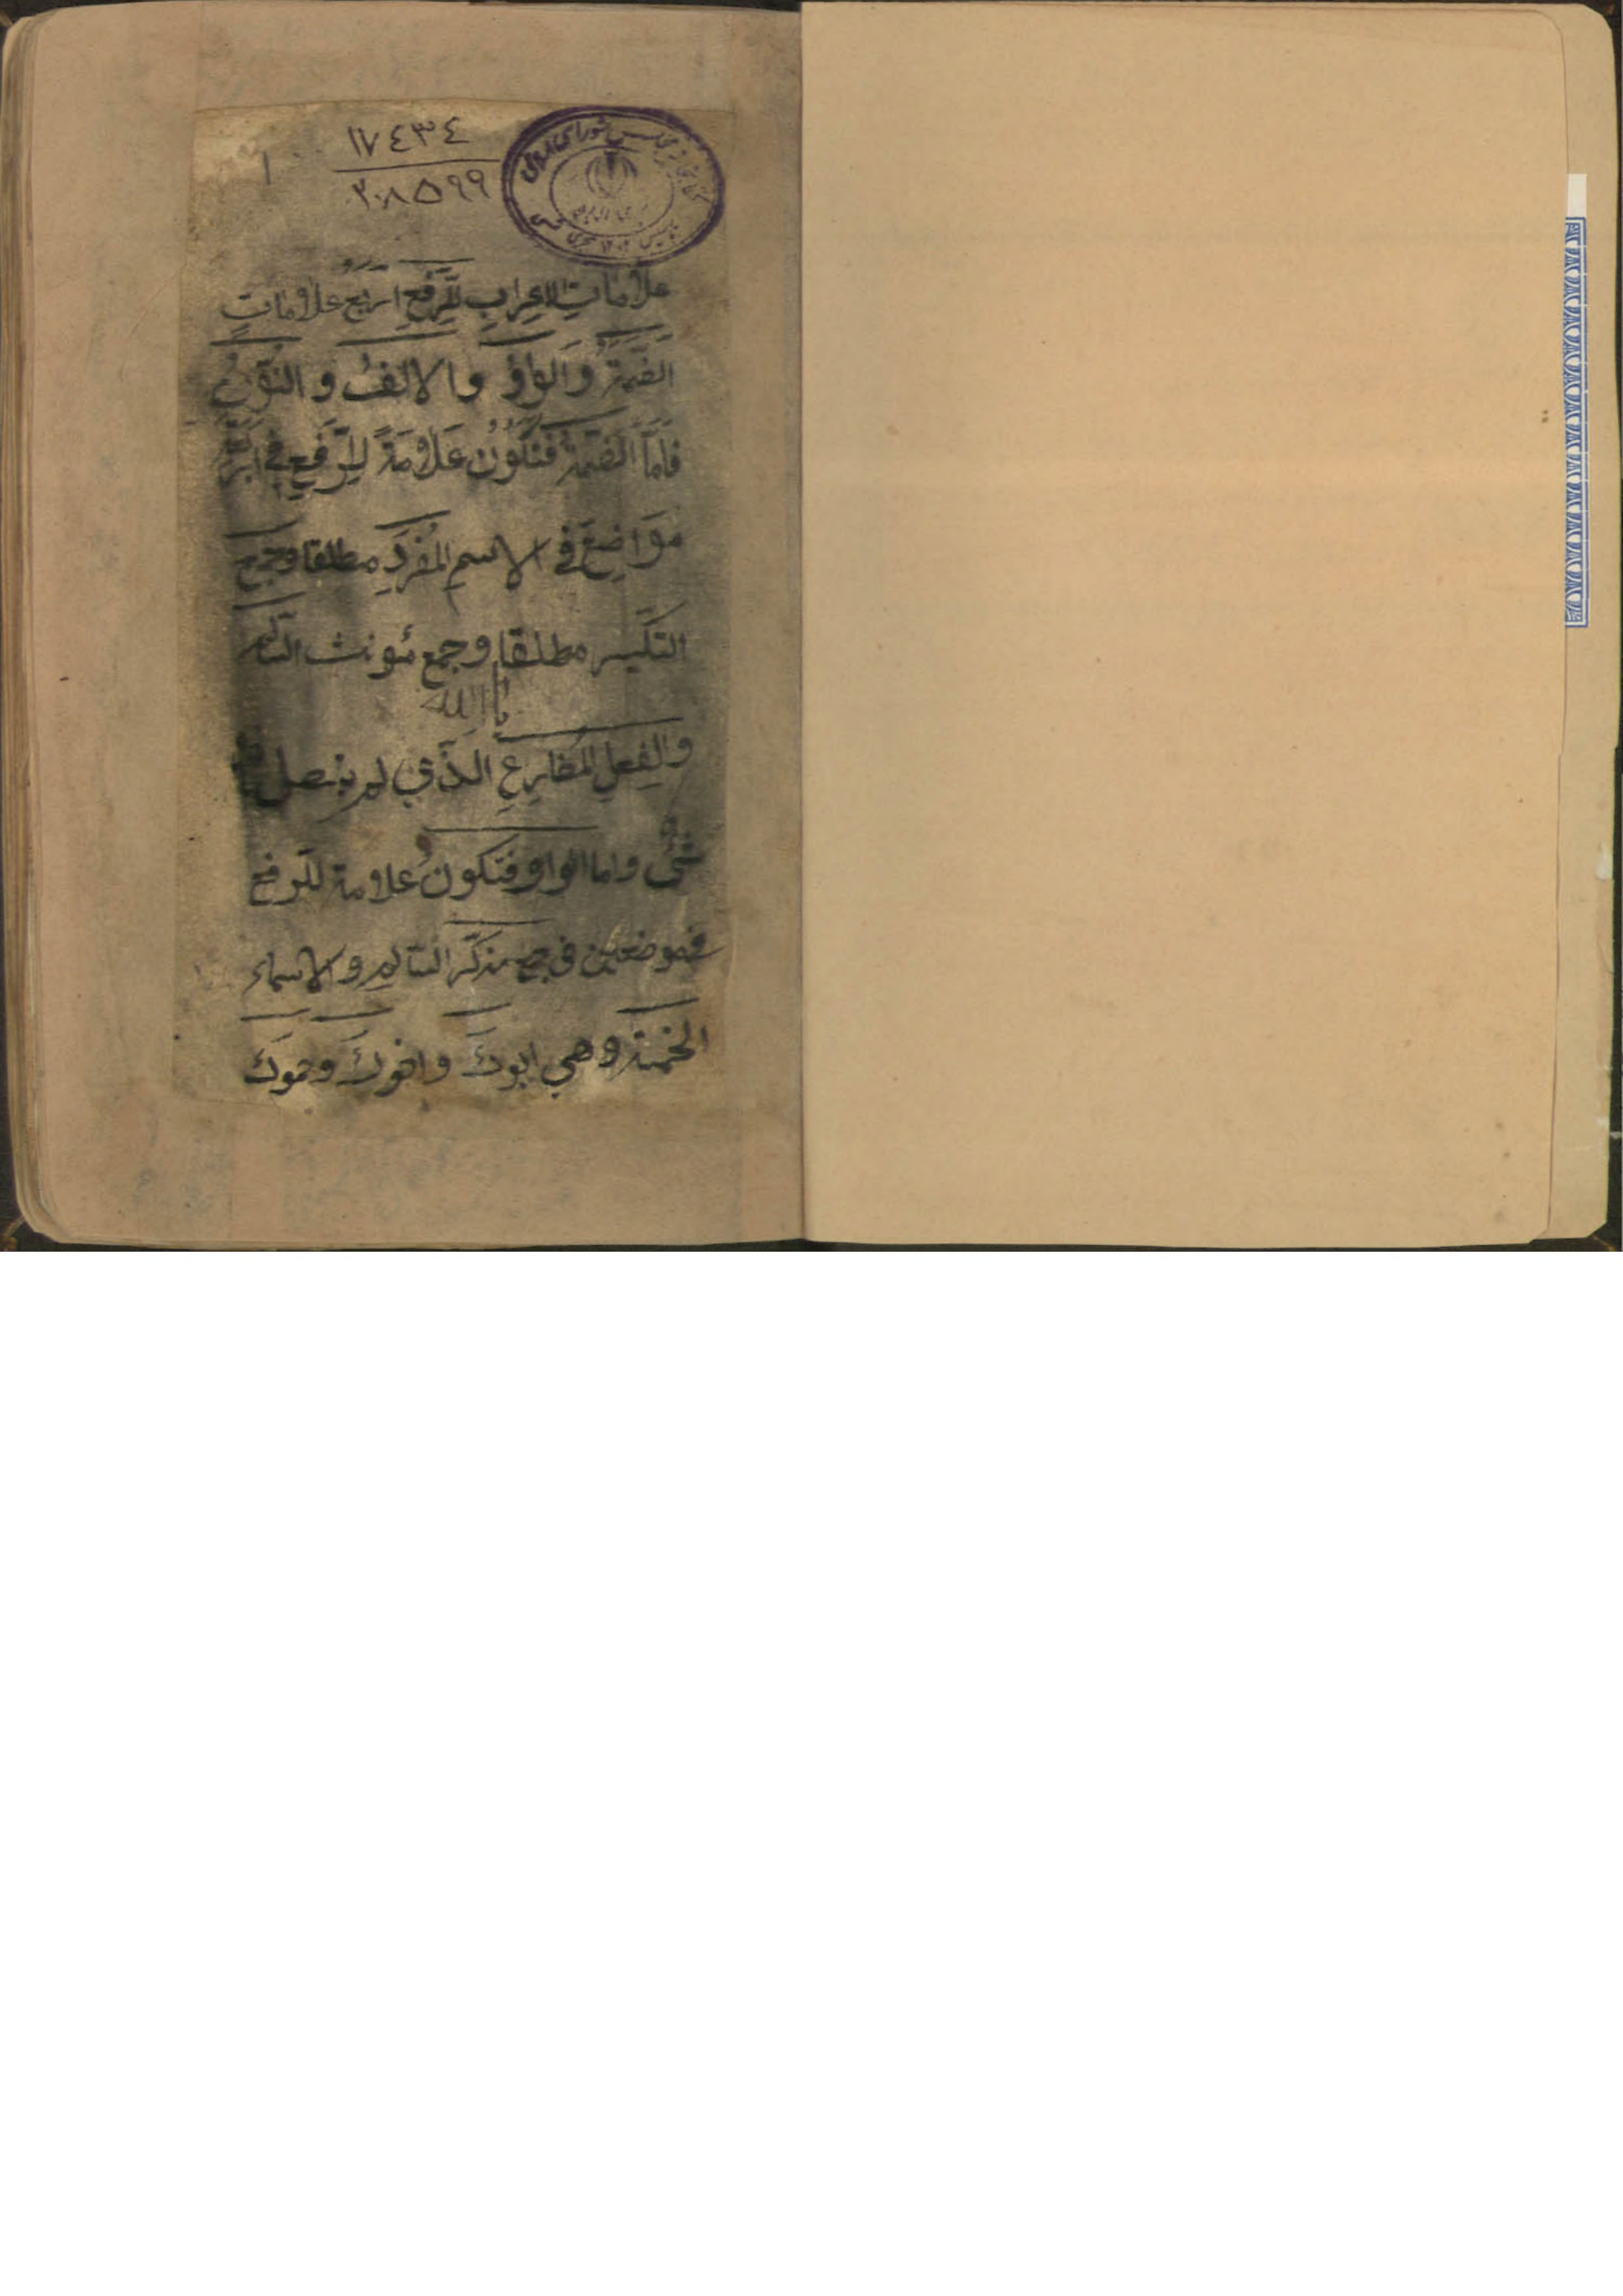 ١٧٤٣٤
٢٠٨٥٩٩
١
علامات الاعراب للرفع اربع علاماتٍ
الضمّةُ وَالواوُ والالفُ و النّونُ
فامّا الضّمّةُ فتكُونُ عَلامَةً لِلرّفعِ في
مَوَاضِعَ في الاسم المُفرَدِ مطلقا وجمع
التكسير مطلقا وجمع مونث السّالم
يا الله
والفِعلِ المُضارعِ الّذي لم يتصل
شئٌ واما الواو فتكونُ علامة للرفع
في موضعين في جمع مذكّر السّالم و الاسماء
الخمسة وهي ابوكَ واخوكَ وحموكَ